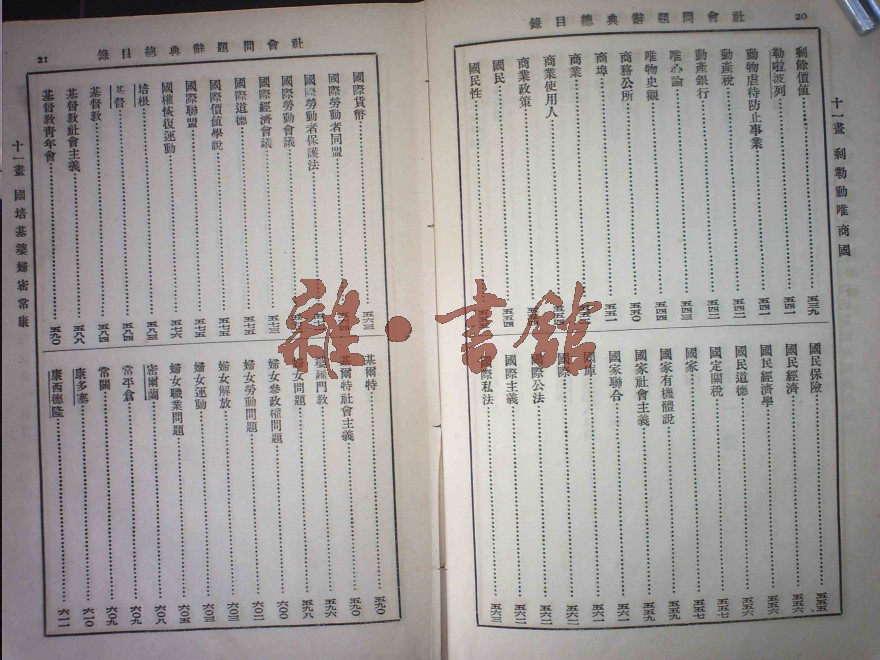 社會問題辭典總目錄
20
十一畫 剩勒動唯商國
剩餘價值……五三九
勒啦波列……五四一
動物虐待防止事業……五四一
動產稅……五四二
動產銀行……五四三
唯心論……五四四
唯物史觀……五四四
商務公所……五五〇
商埠……五五一
商業……
商業使用人……
商業政策……
國民……五五四
國民性……
國民保險……五五五
國民經濟……五五六
國民經濟學……五五六
國民道德……五五七
國定關稅……五五七
國家……五五七
國家有機體說……五五九
國家社會主義……五五九
國家聯合……五六一
國庫……五六一
國際……五六二
國際公法……五六二
國際主義……五六二
國際私法……五六三
社會問題辭典總目錄
21
國際貨幣……五六三
國際勞動者同盟……
國際勞動者保護法……
國際勞動會議……
國際經濟會議……五七三
國際道德……五七五
國際價值學說……五七五
國際聯盟……五七五
國權恢復運動……五七六
培根……五八三
基督……五八四
基督教……五八四
基督教社會主義……五八八
基督教青年會……五九〇
基爾特……五九〇
基爾特社會主義……五九〇
婆羅門教……五九六
婦女問題……五九八
婦女參政權問題……六〇〇
婦女勞動問題……六〇二
婦女解放……六〇三
婦女運動……六〇三
婦女職業問題……六〇五
密爾蘭……六〇八
常平倉……六〇九
常關……六〇九
康多塞……六一〇
康西德隆……六一一
十一畫 國培基婆婦密常康
雜·書館